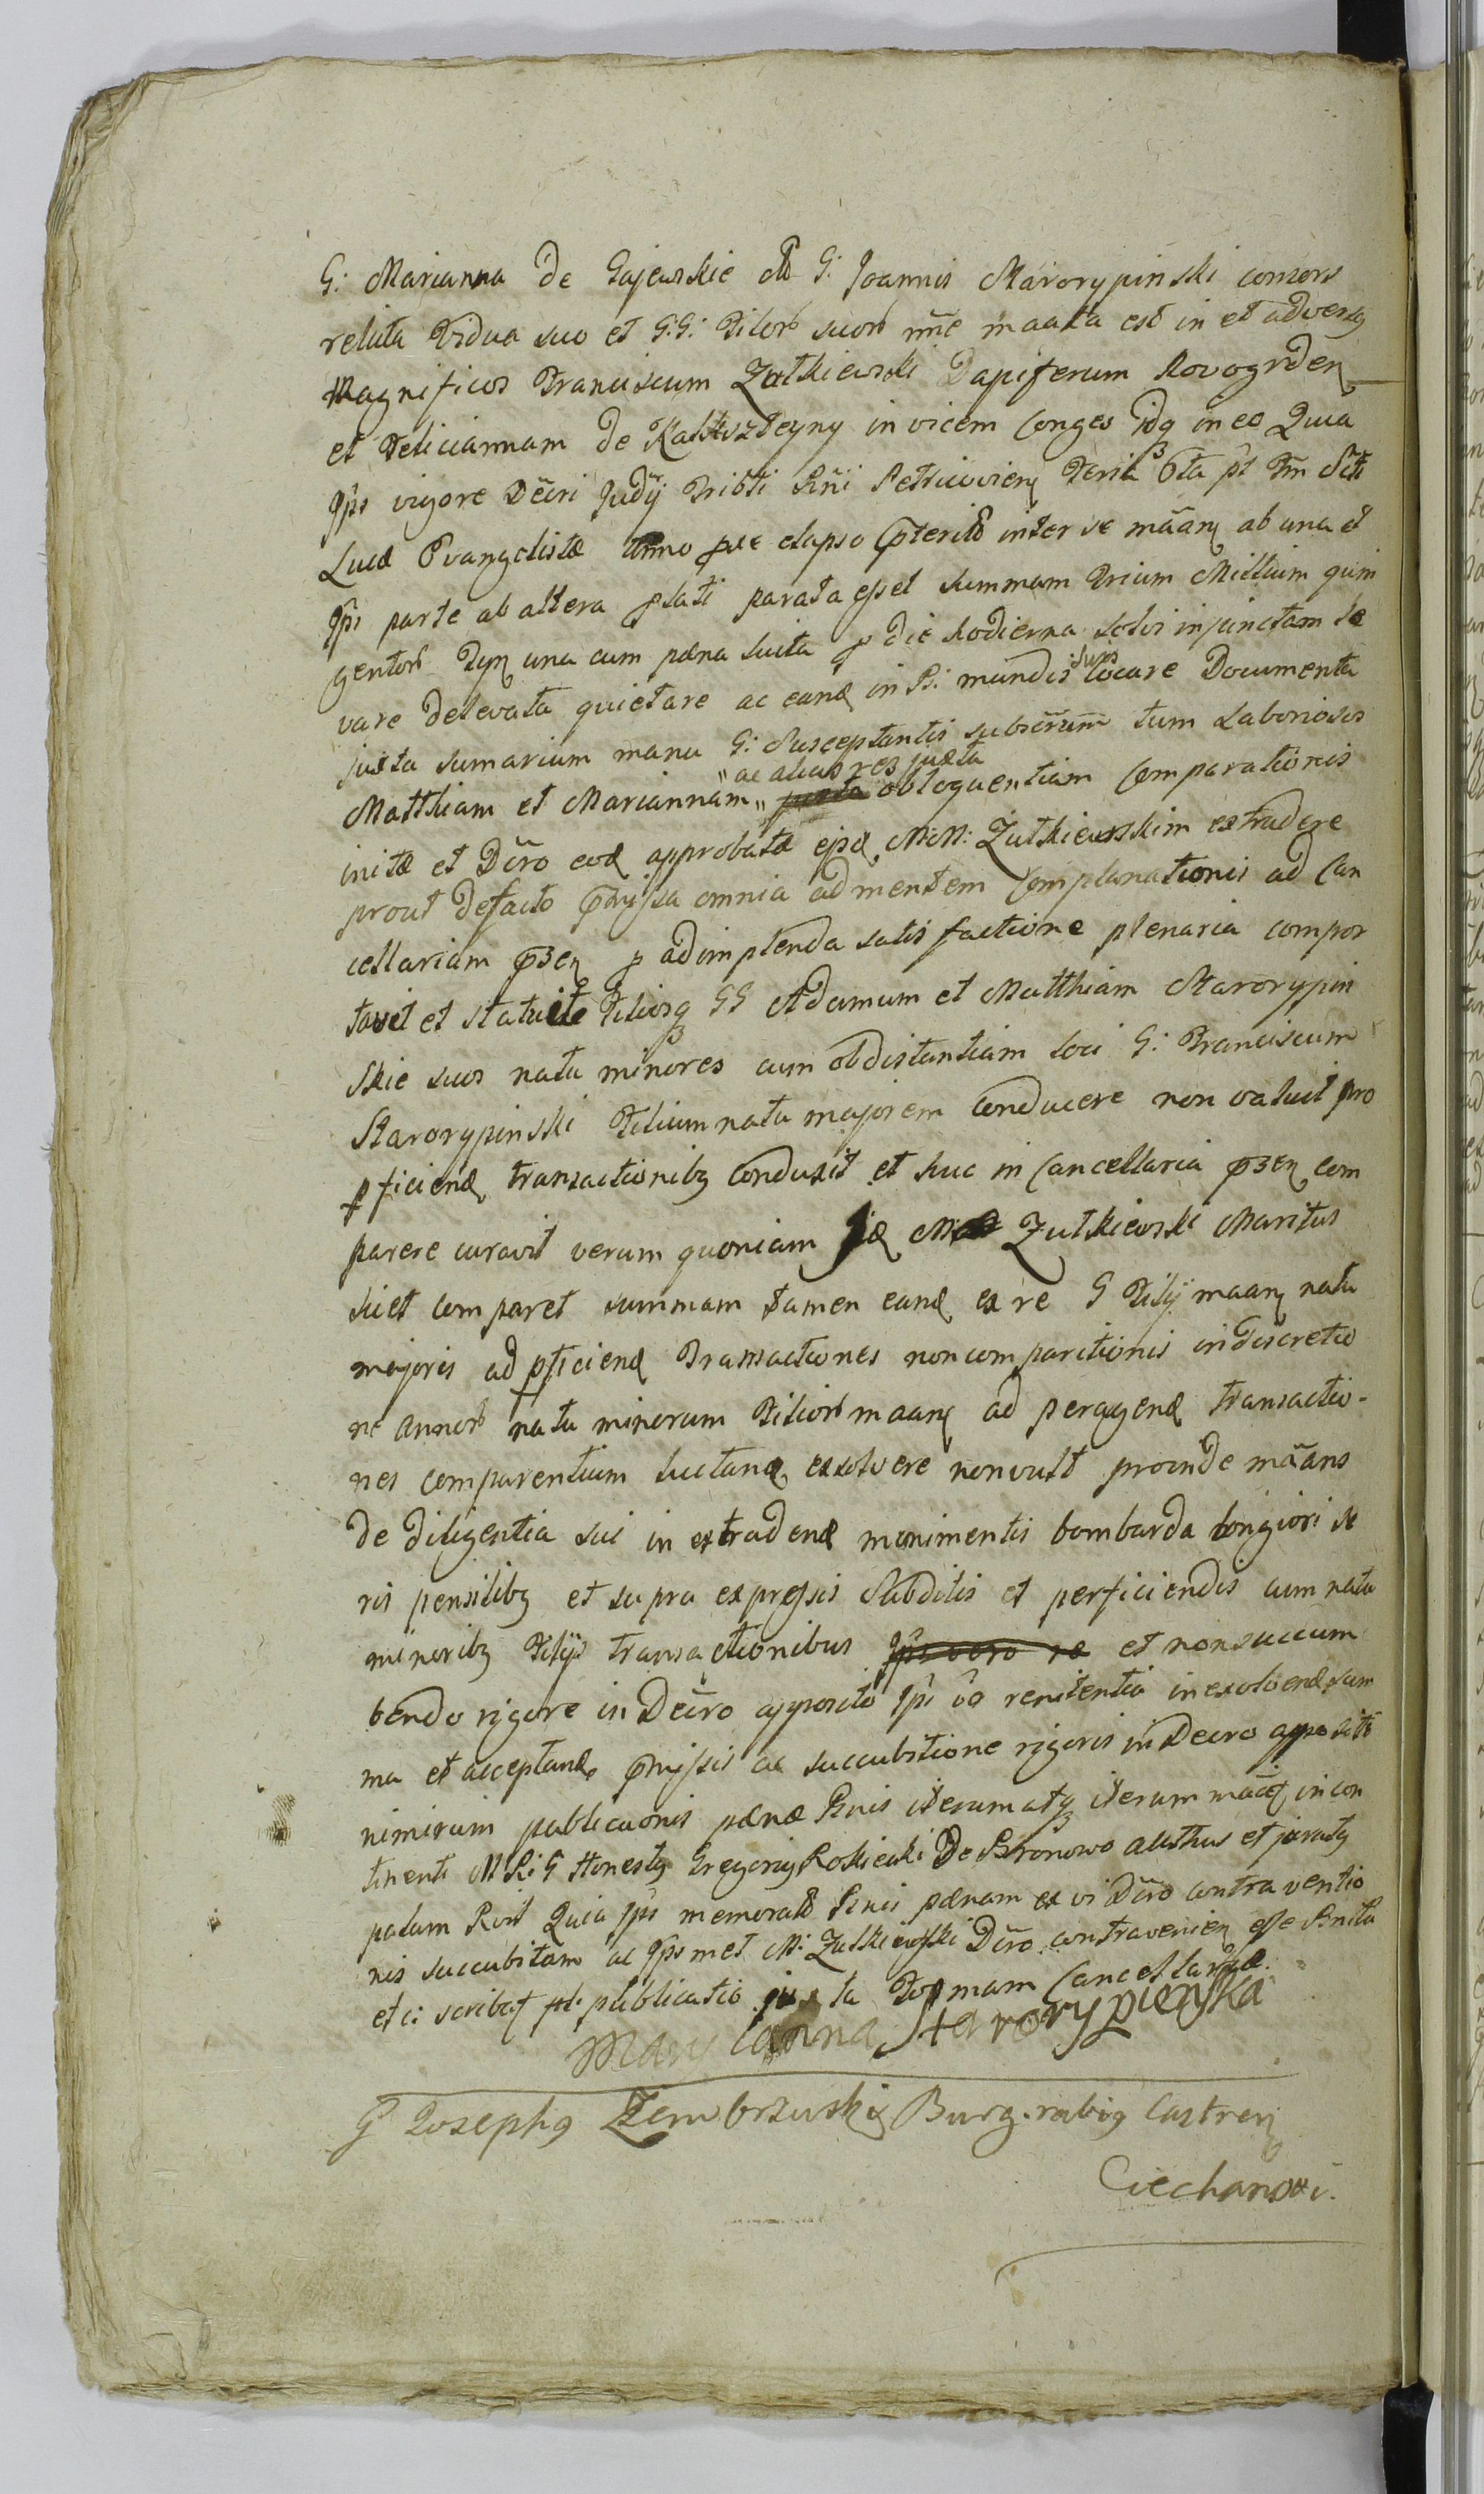 G: Marianna de Gajewskie G: Joannis Starorypinski consors
relicta Vidua suo et G:G: Filiorb suorb nne maata est in et advers9
Magnificos Franciscum Zutkiewski Dapiferum Novogrden
et Feliciannam de Kaltszteyny invicem Conges idq in eo Quia
Ips vigore Decri Judij Tribti Rni Petricovien Feria 6ta pt Fm Scti
Lucæ Evangelistæ Anno elapso præterito inter se maan ab una et
Ips parte ab altera plati parata esset summam Trium Millium quin
gentorb Tyn una cum pæna lucta p die hodierna solvi injunctam le
vare delevata quietare ac eand in P: mundis suis locare Documenta
juxta sumarium manu G: Susceptantis subscrum tum Laboriosos
Matthiam et Mariannam "ac alias res juxta obloquentiam Comparationis
initæ et Dcro eod approbatæ ejsd MM: Zutkiewskim extradere
prout defacto præmissa omnia ad mentem Complanationis ad Can
cellariam præsen p adimplenda satisfactione plenaria compor
tavit et statuit Filiosq GG Adamum et Matthiam Starorypin
skie suos natu minores cum obdistantiam loci G: Franciscum
Starorypinski Filium natu majorem conducere non valuit pro
pficiend transactionibq conduxit et huc in Cancellaria præsen com
parere curavit verum quoniam Zutkiewski Maritus
licet comparet summam tamen eand ex re G Filij maan natu
majoris ad pficiend Transactiones noncomparitionis indiscretio
ne annorb natu minorum Filiorb maan ad peragend transactio-
nes comparentium luctand exsolvere nonvult proinde maans
de diligentia sui in extradend monimentis bombarda longiori se
ris pensilibq et supra expressis Subditis et perficiendis cum natu
minoribq Filijs transactionibus et nonsuccum
bendo rigore in Decro apposito Ips vo renitentia inexolvend sum
ma et acceptand præmissis ac succubitione rigoris in Decro appositi
nimirum publicaonis pænæ Bnis iterum atq iterum incon
tinenti M Ri G Honest9 Gregori9 Rokicki De Bronowo authus et jurat9
palam Rvit Quia Ips memorato Bnis pænam ex vi Dcro contraventio
nis succubitam ac Ipsmet M: Zutkiewski Dcro contravenien esse
et c: publicatio juxta Formam Cancellariæ.
Maryianna Starorypienska
G Joseph9 Zembrzuski Burgrabi9 Castren
Ciechanovi.